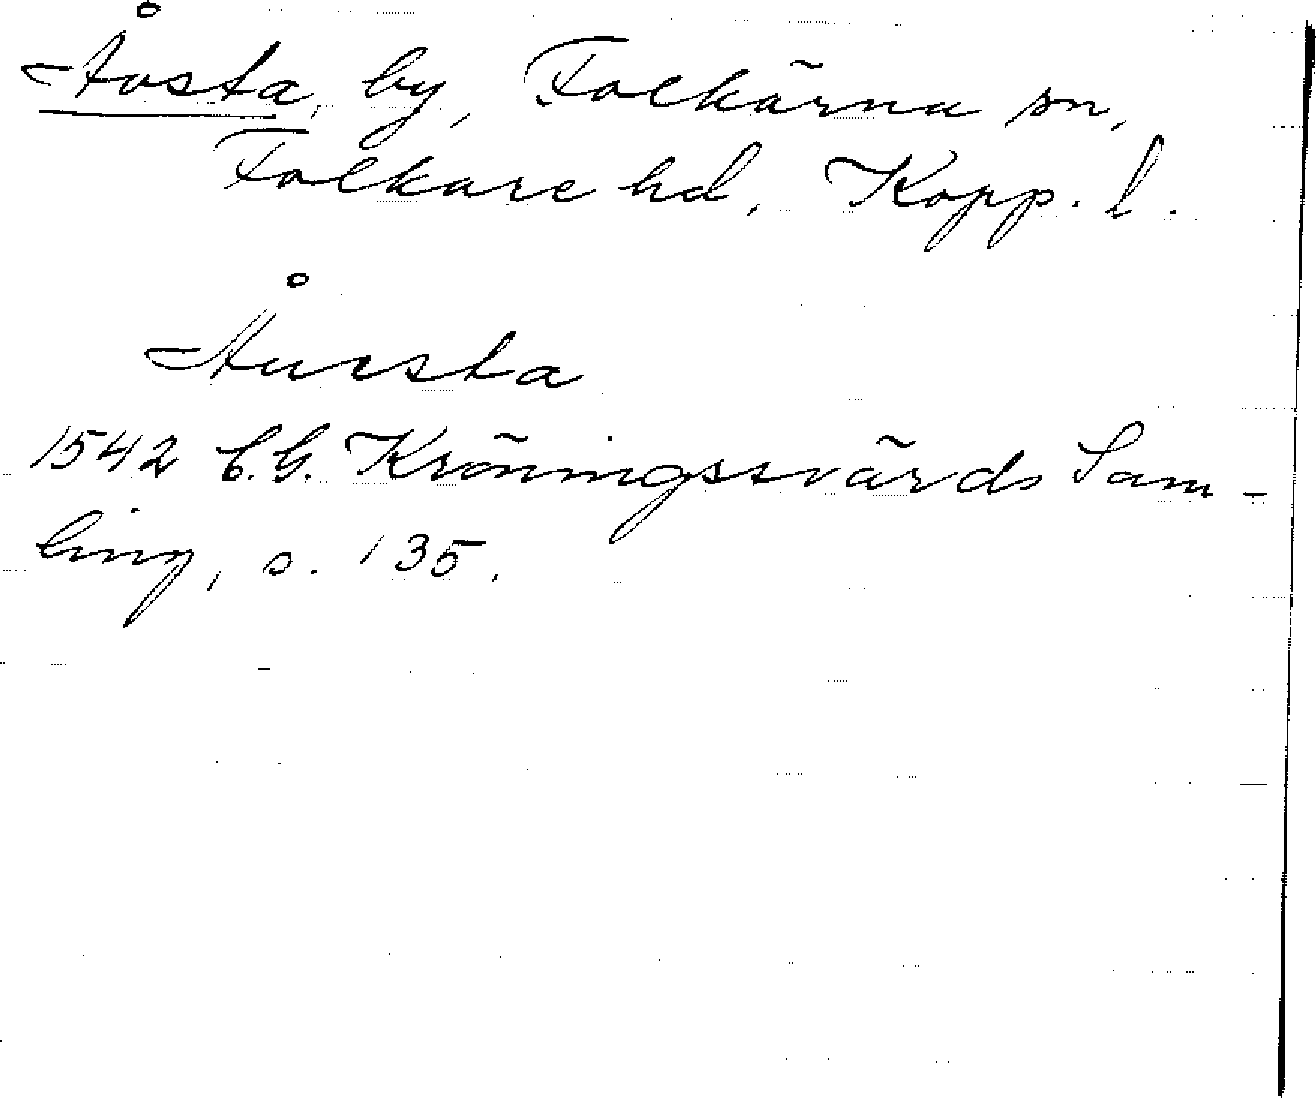 Åvsta, by, Folkärna sn,
Folkare hd, Kopp. l.
Åursta
1542 C.G. Kröningssvärds Sam-
ling, s. 135.